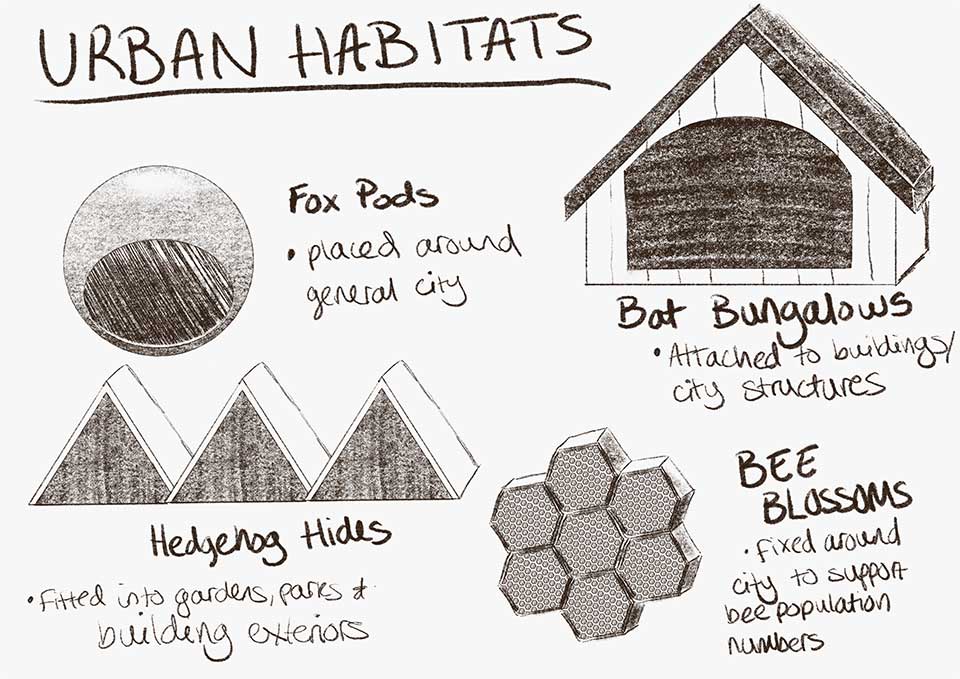 URBAN HABITATS
Fox Pods
• placed around
general city
Bat Bungalows
• Attached to buildings/
city structures
Hedgehog Hides
• Fitted into gardens, parks +
building exteriors
BEE
BLOSSOMS
• fixed around
city to support
bee population
numbers